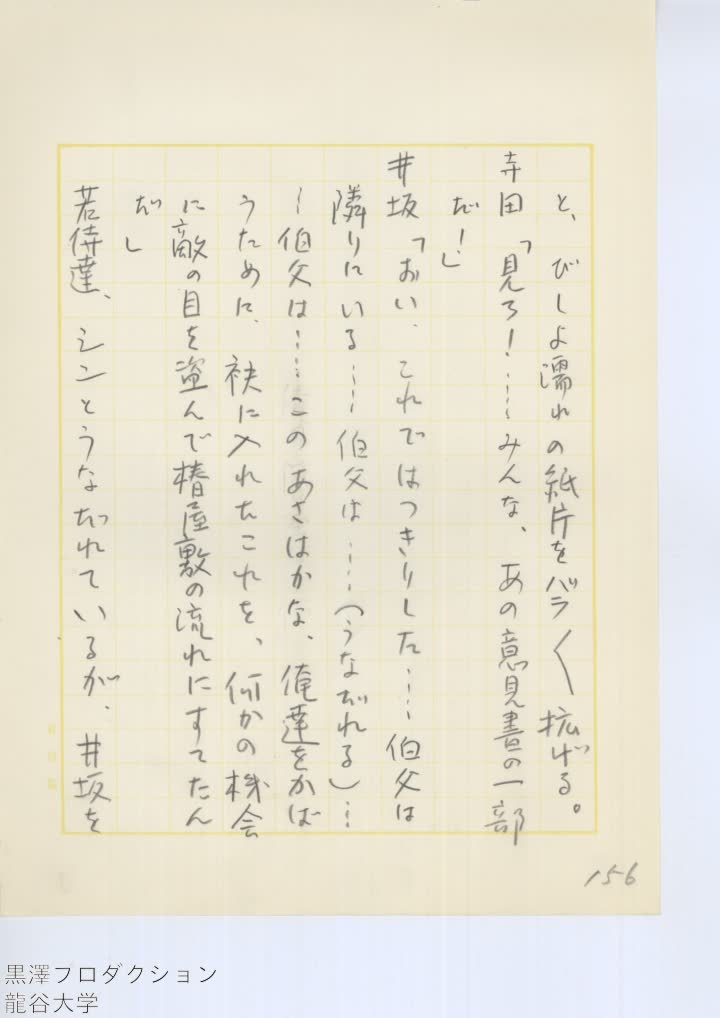 と、びしよ濡れの紙片をバラ〱拡げる。
寺田「見ろ！……みんな、あの意見書の一部
だ！」
井坂「おい、これではつきりした……伯父は
隣りにいる……伯父は……（うなだれる）…
…伯父は……このあさはかな、俺達をかば
うために、袂に入れたこれを、何かの機会
に敵の目を盗んで椿屋敷の流れにすてたん
だ」
若侍達、シンとうなだれているが、井坂を
156
黒澤プロダクション
龍谷大学